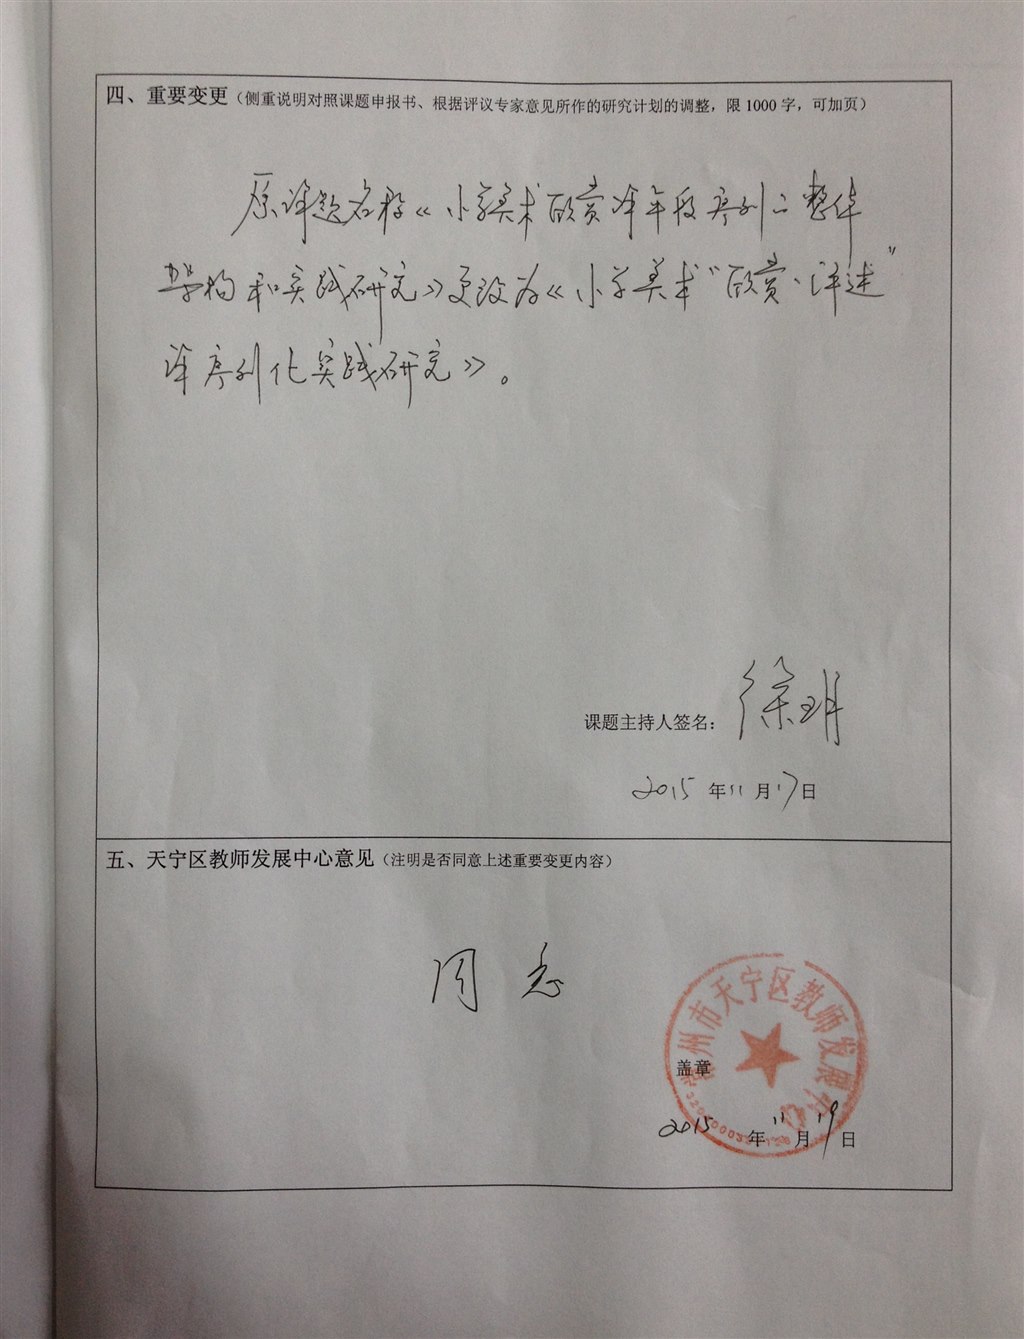 四、重要变更（侧重说明对照课题申报书、根据评议专家意见所作的研究计划的调整，限 1000 字，可加页）
原课题名称《小学美术欣赏课年段序列之整体
架构和实践研究》更改为《小学美术“欣赏·评述”
课序列化实践研究》。
课题主持人签名：徐玥
2015 年 11 月 17 日
五、天宁区教师发展中心意见（注明是否同意上述重要变更内容）
同意
常州市天宁区教师发展中心
盖章
2015 年 11 月 19 日